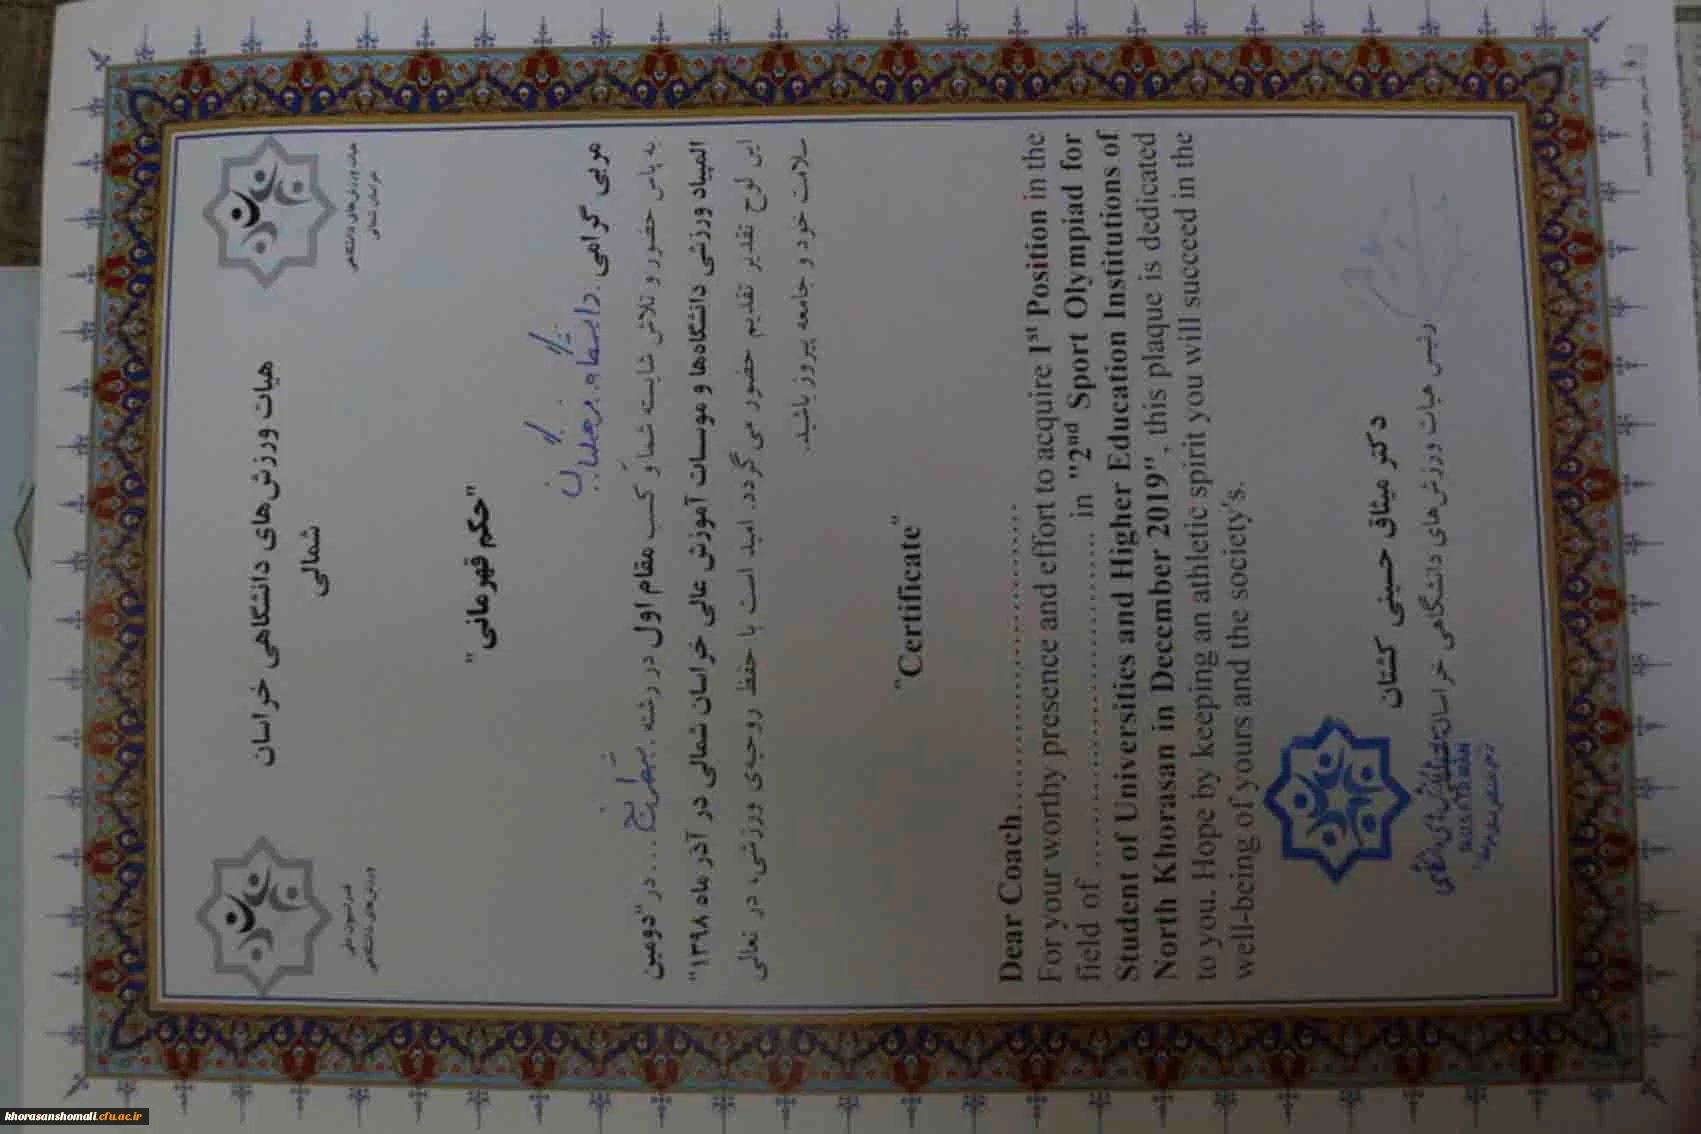 هیات ورزش‌های دانشگاهی خراسان
شمالی
هیات ورزش‌های دانشگاهی
خراسان شمالی
فدراسیون ملی
ورزش‌های دانشگاهی
"حکم قهرمانی"
مربی گرامی
به پاس حضور و تلاش شایسته شما و کسب مقام اول در رشته ..... در "دومین
المپیاد ورزشی دانشگاه‌ها و موسسات آموزش عالی خراسان شمالی در آذر ماه ۱۳۹۸"
این لوح تقدیر تقدیم حضور می گردد. امید است با حفظ روحیه‌ی ورزشی، در تعالی
سلامت خود و جامعه پیروز باشید.
"Certificate"
Dear Coach..............................
For your worthy presence and effort to acquire 1st Position in the
field of .............................. in "2nd Sport Olympiad for
Student of Universities and Higher Education Institutions of
North Khorasan in December 2019", this plaque is dedicated
to you. Hope by keeping an athletic spirit you will succeed in the
well-being of yours and the society's.
دکتر میثاق حسینی کشتان
رئیس هیات ورزش‌های دانشگاهی خراسان شمالی
khorasanshomali.cfu.ac.ir